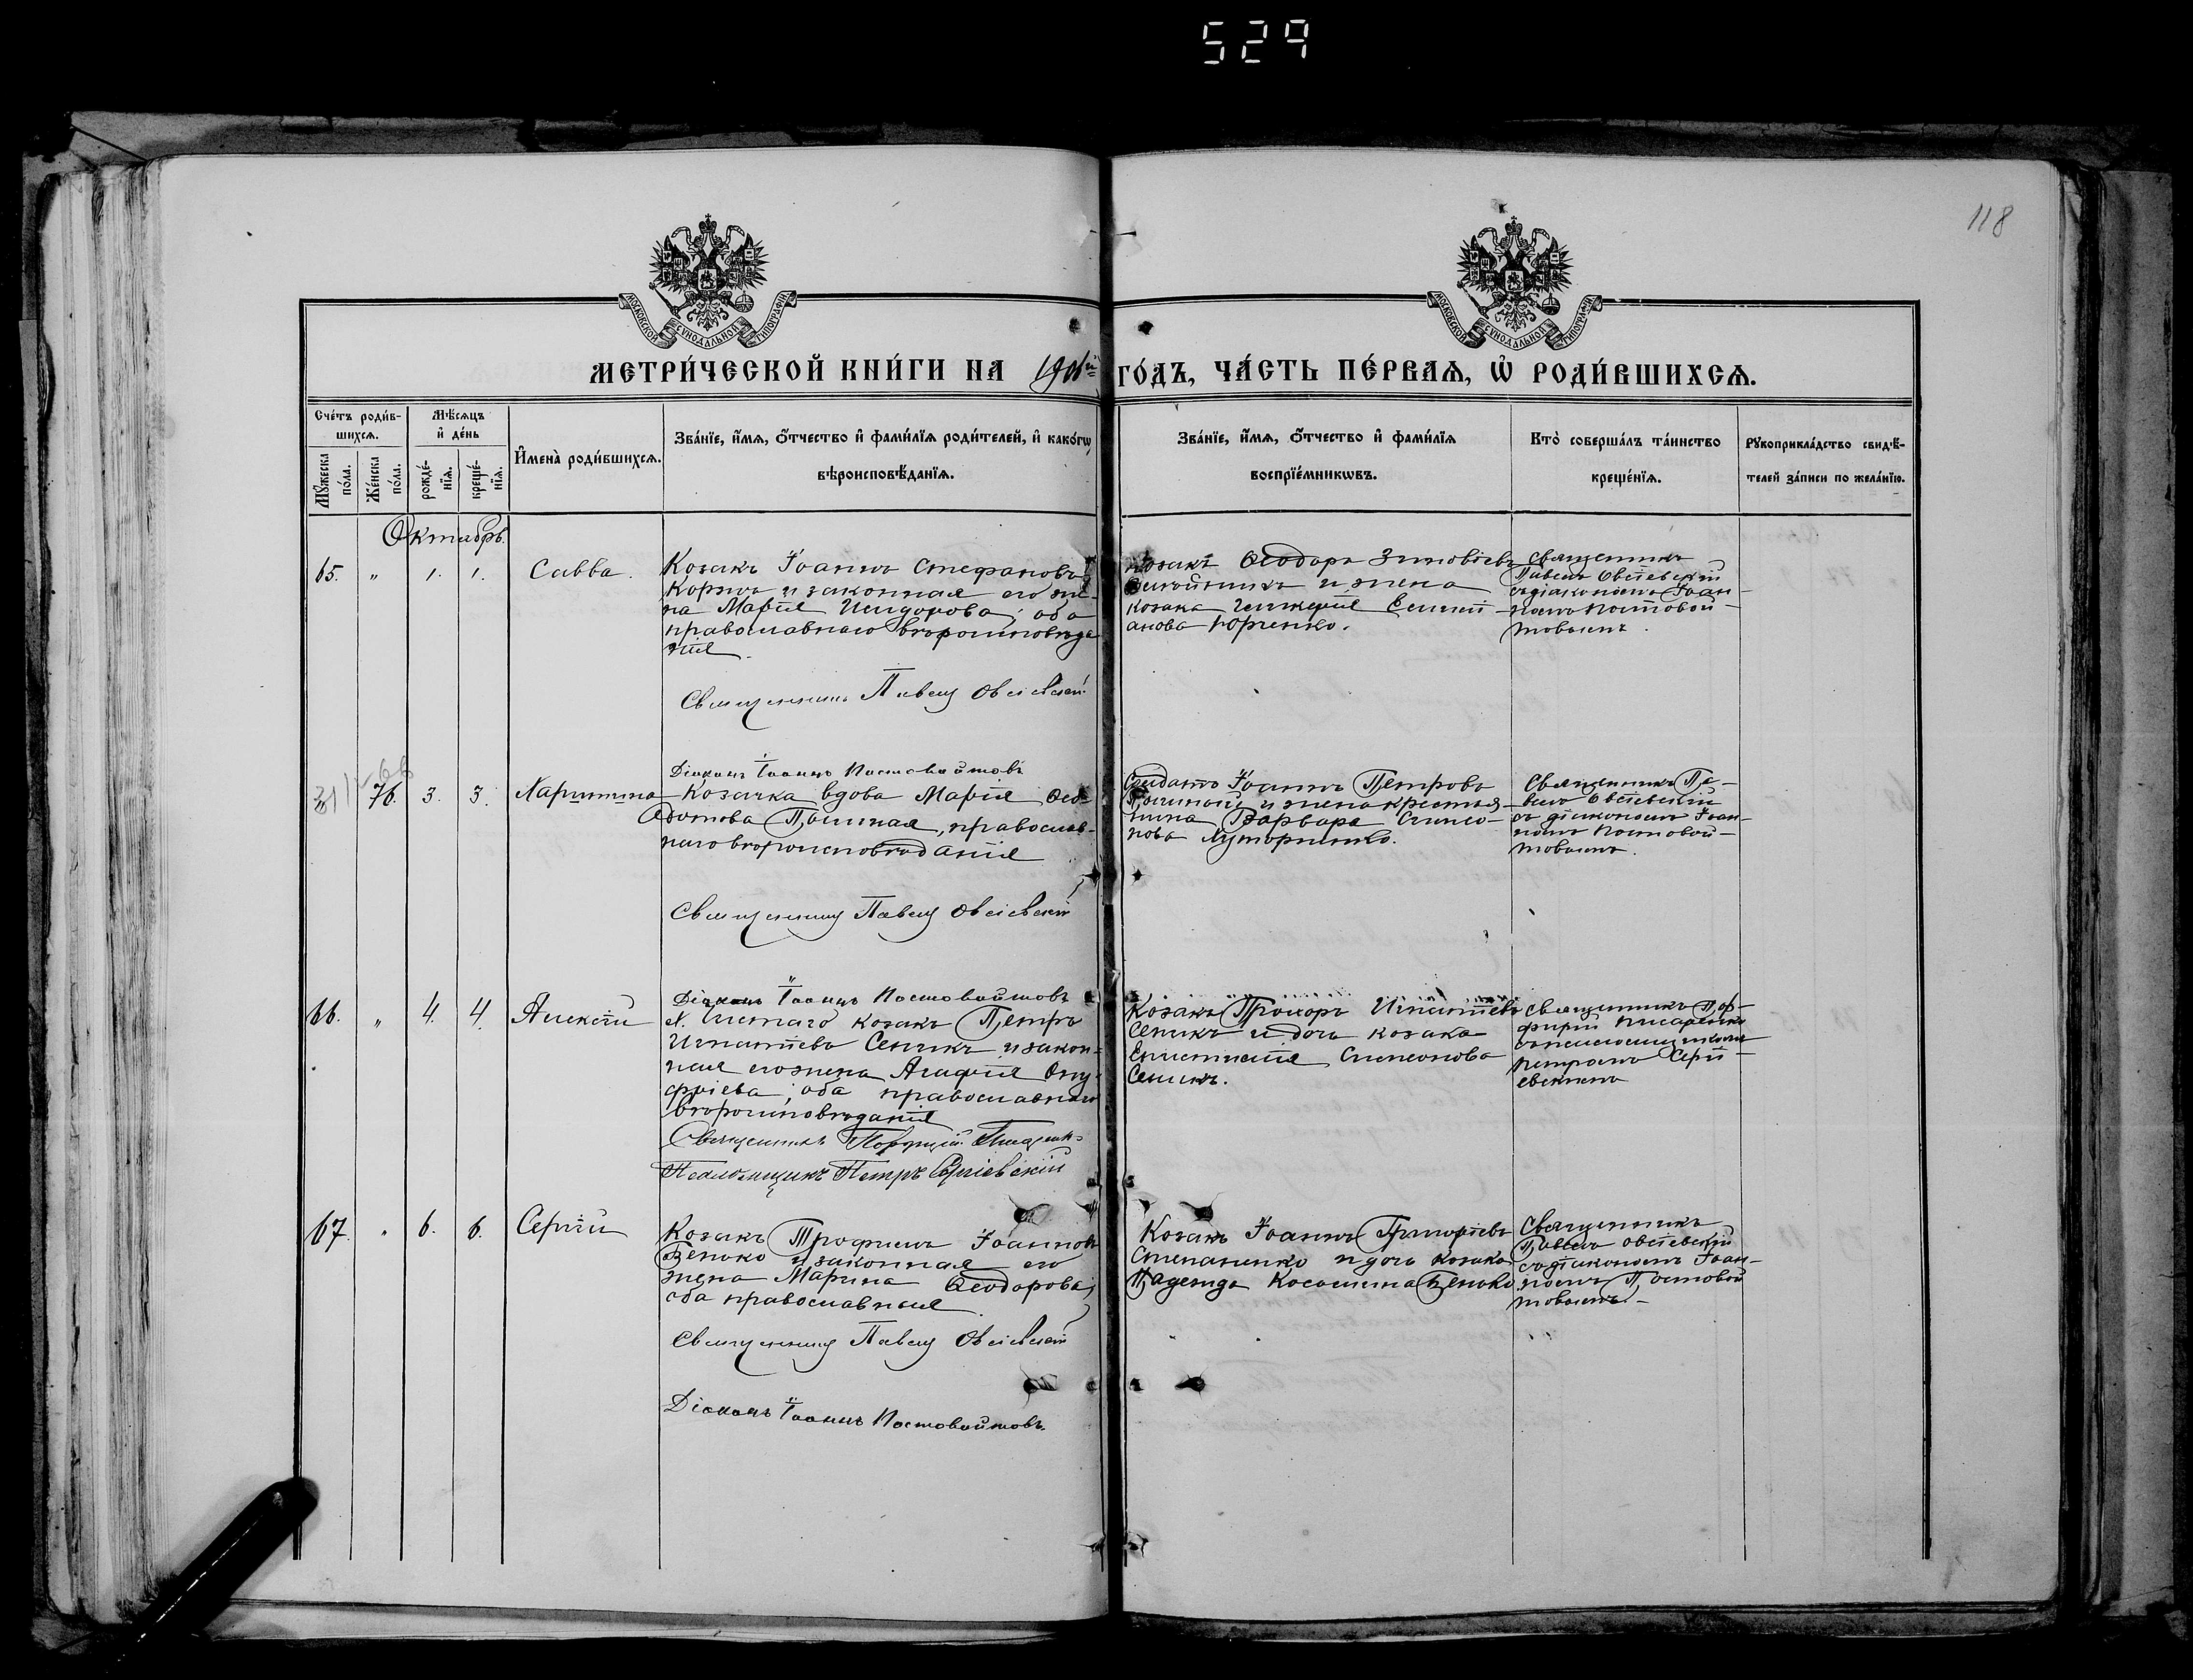 529
118
МОСКОВСКОЙ СѴНОДАЛЬНОЙ ТИПОГРАФІИ
МОСКОВСКОЙ СѴНОДАЛЬНОЙ ТИПОГРАФІИ
МЕТРИ́ЧЕСКОЙ КНИ́ГИ НА
ГО́ДЪ, ЧА́СТЬ ПЕ́РВАѦ, Ѡ҆ РОДИ́ВШИХСѦ.
Сче́тъ роди́в-
шихсѧ.
Мꙋ́жеска
по́ла.
Же́нска
по́ла.
Мѣ́сѧцъ
и҆ де́нь
рожде́-
нїѧ.
креще́-
нїѧ.
И҆мена̀ роди́вшихсѧ.
Зва́нїе, и҆́мѧ, ѻ҆́тчество и҆ фами́лїѧ роди́телей, и҆ како́гѡ
вѣроисповѣ́данїѧ.
Зва́нїе, и҆́мѧ, ѻ҆́тчество и҆ фами́лїѧ
воспрїе́мникѡвъ.
Кто̀ соверша́лъ та́инство
креще́нїѧ.
Рꙋкоприкла́дство свидѣ́-
телей за́писи по жела́нїю.
Октябрь.
65. " 1. 1. Савва.
Козакъ Іоаннъ Стефановъ
Коржъ и законная его же-
на Марія Исидорова; оба
православнаго вѣроисповѣда
нія.
Священникъ Павелъ Овсіевскій
Діаконъ Іоаннъ Постовойтовъ
Козакъ Ѳеодоръ Зиновіевъ
и жена
козака
анова Юрченко.
Священникъ
Павелъ Овсіевскій
съ діакономъ Іоан-
номъ Постовой-
товымъ.
" 76. 3. 3. Харитина
Козачка вдова Марія Ѳео-
дотова православ-
наго вѣроисповѣданія
Священникъ Павелъ Овсіевскій
Діаконъ Іоаннъ Постовойтовъ
Солдатъ Іоаннъ Петровъ
и жена крестья-
нина Варвара Симео-
нова Хуторненко.
Священникъ Па-
велъ Овсіевскій
съ діакономъ Іоан-
номъ Постовой-
товымъ.
66. " 4. 4. Алексій
х. козакъ Петръ
Игнатіевъ Сеникъ и закон-
ная его жена Агафія Ону-
фріева; оба православнаго
вѣроисповѣданія
Священникъ Порфирій
Псаломщикъ Петръ Сергіевскій
Козакъ Прохоръ Игнатіевъ
Сеникъ и дочь козака
Симеонова
Сеникъ.
Священникъ Пор-
фирій Писаренко
съ псаломщикомъ
Петромъ Сергі-
евскимъ
67. " 6. 6. Сергій
Козакъ Трофимъ Іоанновъ
и законная его
жена Марина Ѳеодорова;
оба православные.
Священникъ Павелъ Овсіевскій
Діаконъ Іоаннъ Постовойтовъ.
Козакъ Іоаннъ Григоріевъ
Степаненко и дочь козака
Надежда
Священникъ
Павелъ Овсіевскій
съ діакономъ Іоан-
номъ Постовой
товымъ.-